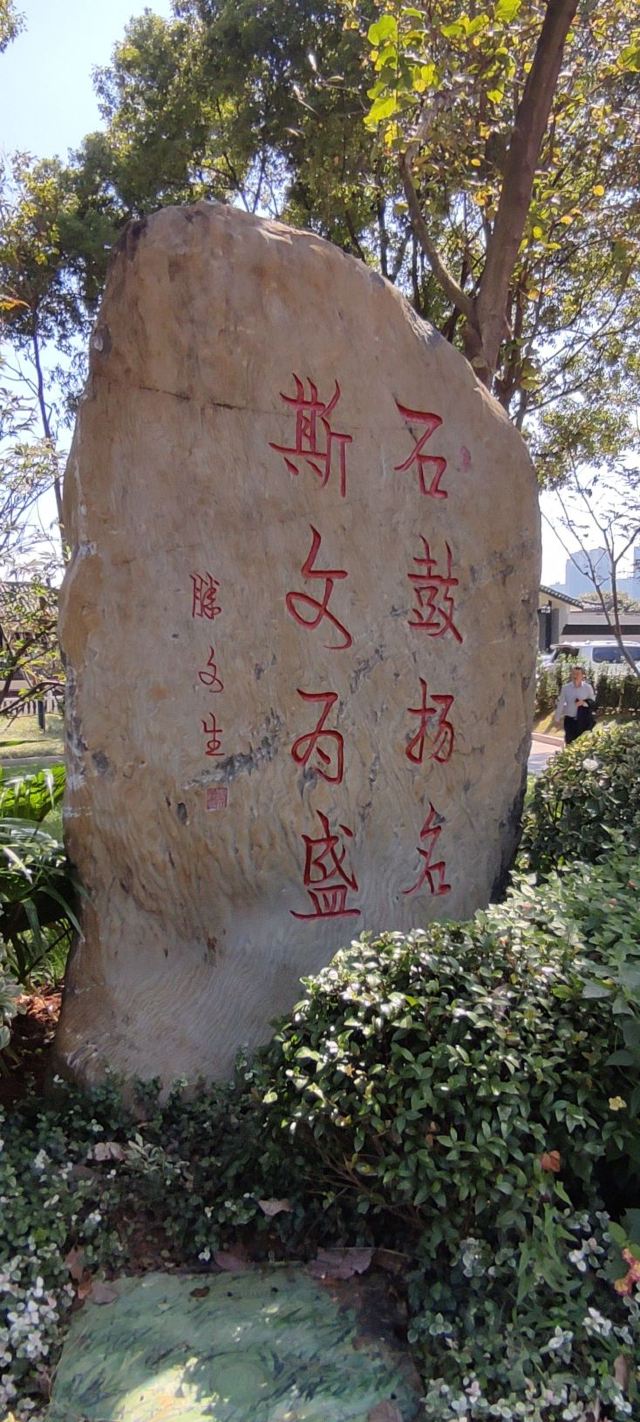 石鼓扬名
斯文为盛
滕文生